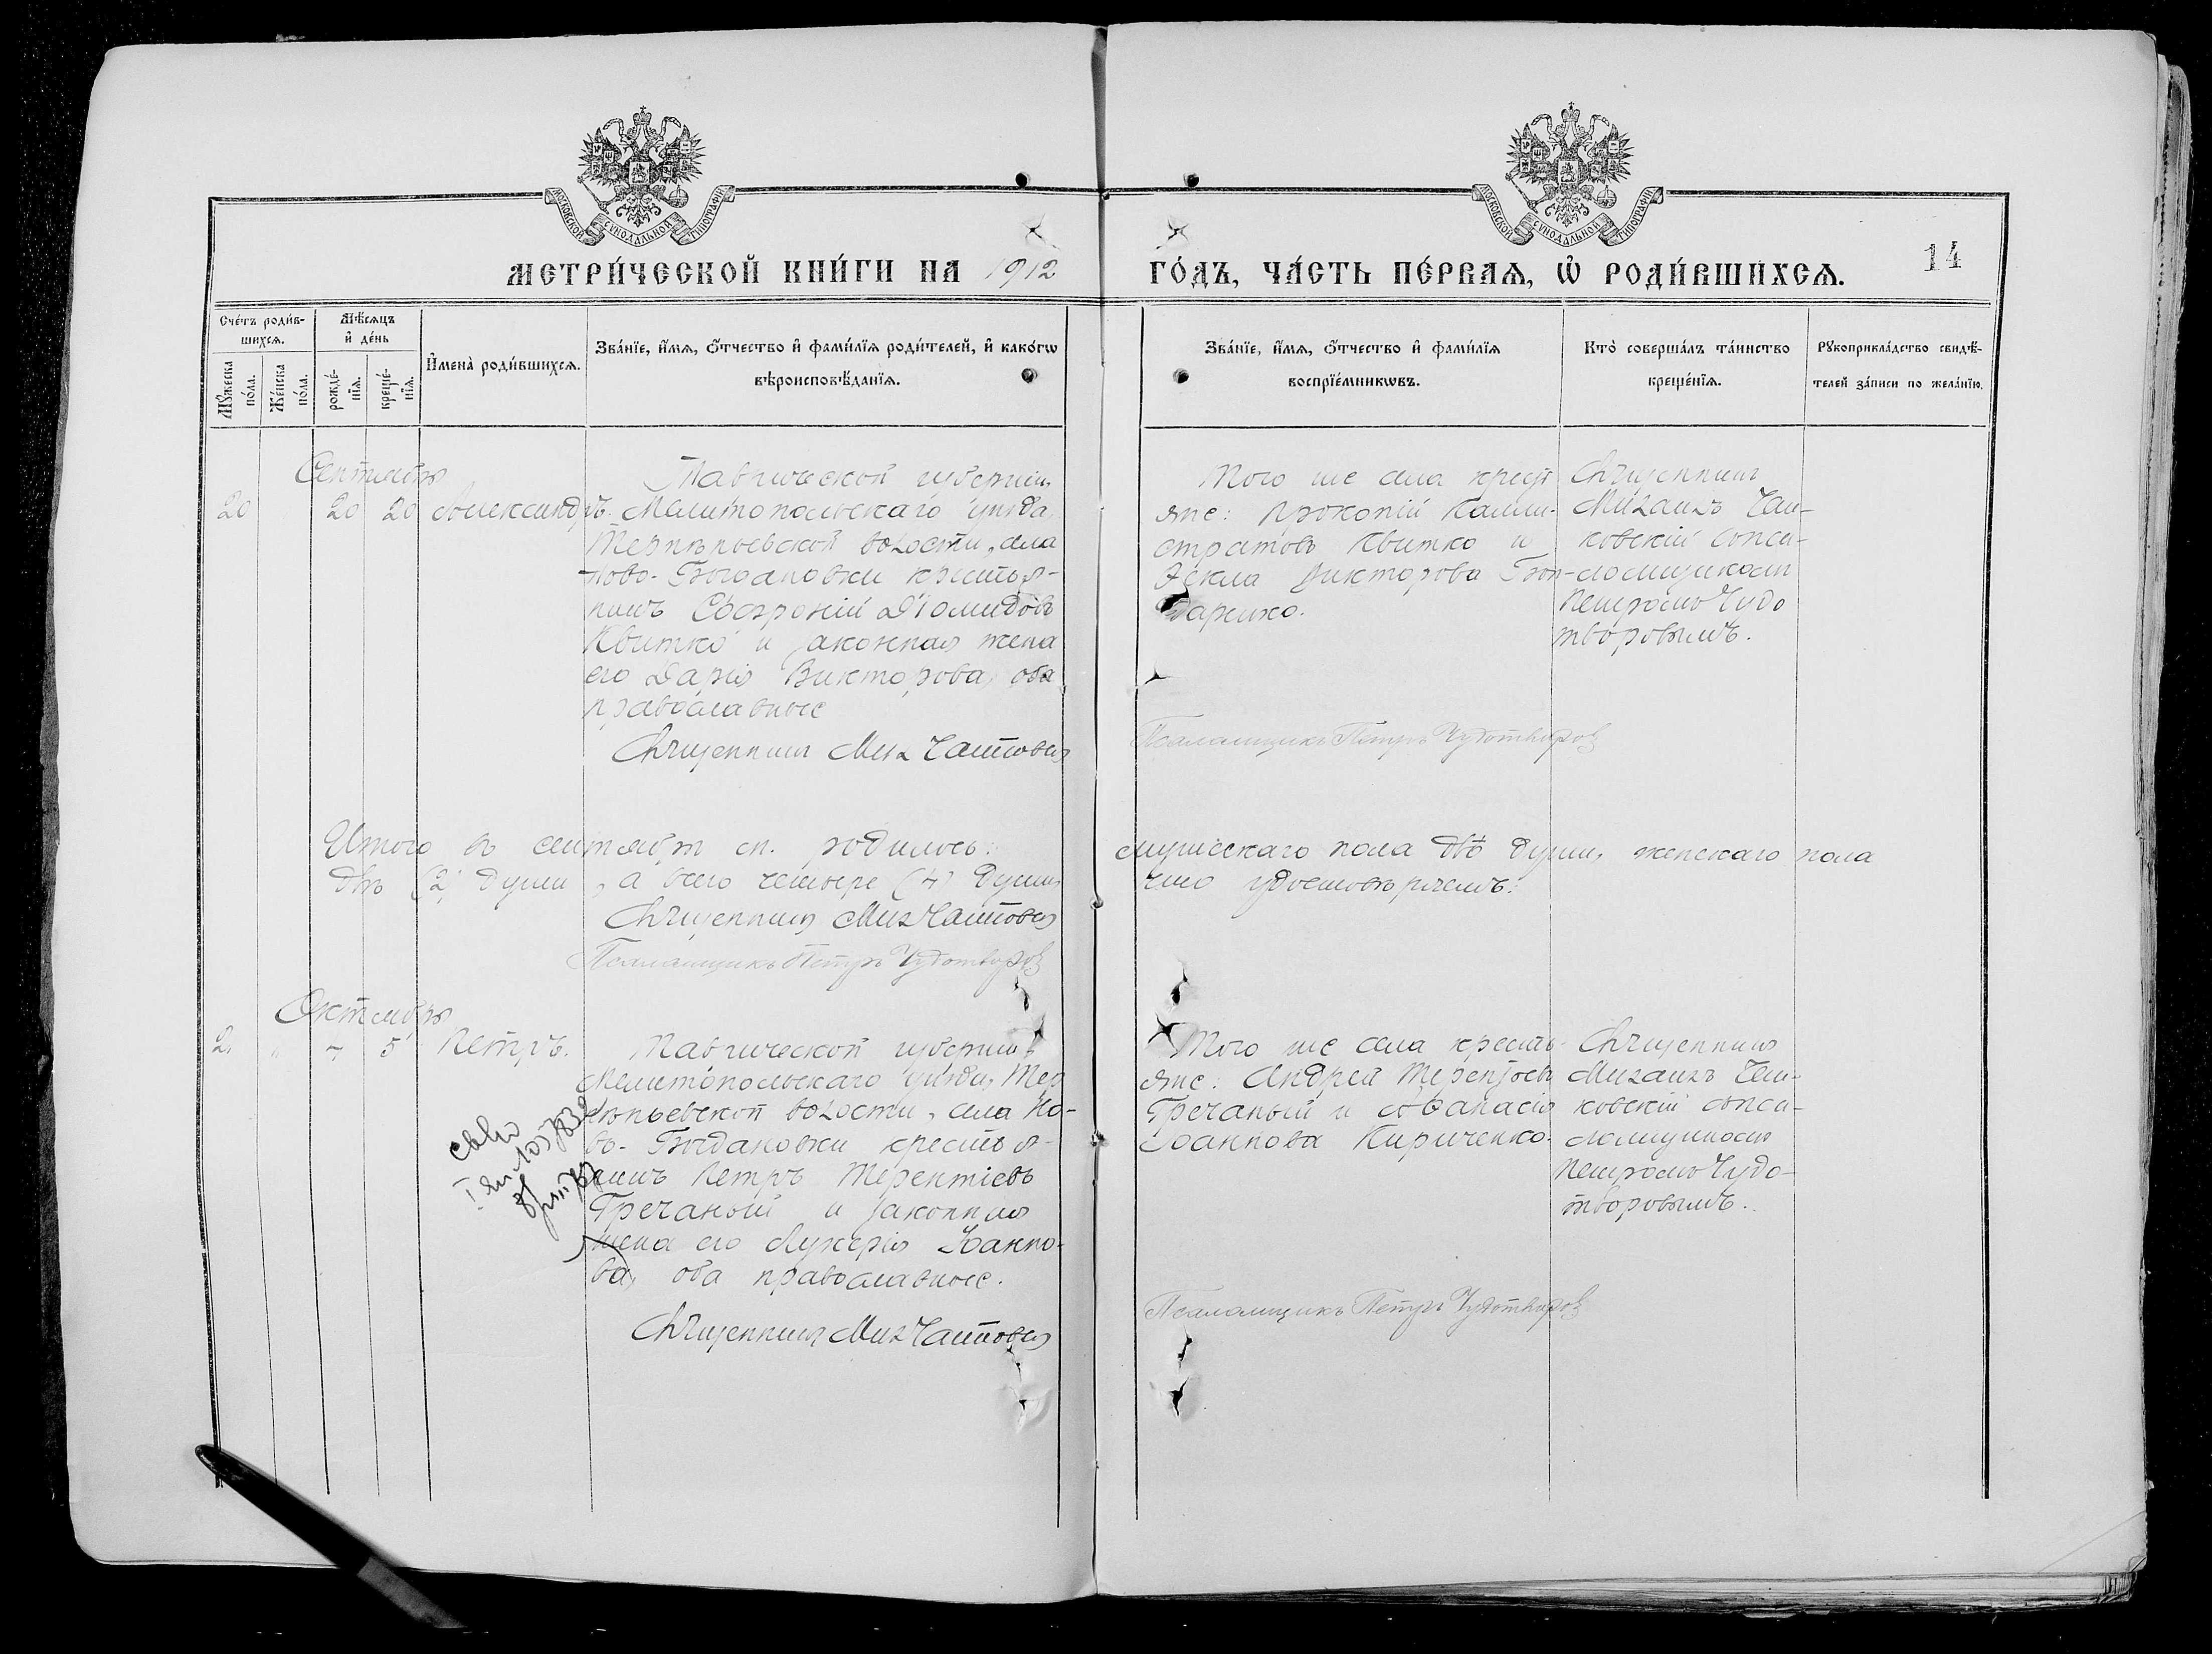 МОСКОВСКОЙ СѴНОДАЛЬНОЙ ТИПОГРАФІИ
МОСКОВСКОЙ СѴНОДАЛЬНОЙ ТИПОГРАФІИ
МЕТРИ́ЧЕСКОЙ КНИ́ГИ НА 1912
ГО́ДЪ, ЧА́СТЬ ПЕ́РВАѦ, Ѡ҆ РОДИ́ВШИХСѦ.
14
Сче́тъ роди́в-
шихсѧ.
Мꙋ́жеска
по́ла.
Же́нска
по́ла.
Мѣ́сѧцъ
и҆ де́нь
рожде́-
нїѧ.
креще́-
нїѧ.
И҆мена̀ роди́вшихсѧ.
Зва́нїе, и҆́мѧ, ѻ҆́тчество и҆ фами́лїѧ роди́телей, и҆ како́гѡ
вѣроисповѣ́данїѧ.
Зва́нїе, и҆́мѧ, ѻ҆́тчество и҆ фами́лїѧ
воспрїе́мникѡвъ.
Кто̀ соверша́лъ та́инство
креще́нїѧ.
Рꙋкоприкла́дство свидѣ́-
телей за́писи по жела́нїю.
Сентября
20 20 20 Александръ.
Таврической губерніи,
Мелитопольскаго уѣзда,
Терпѣньевской волости, села
Ново-Богдановки крестья-
нинъ Софроній Діомидовъ
Квитко и законная жена
его Дарія Викторова, оба
православные
Священникъ Мих Чайковскій
Того же села крест
яне: Прокопій Калли-
стратовъ Квитко и
Ѳекла Викторова Бон-
даренко.
Священникъ
Михаилъ Чай-
ковскій съ пса-
ломщикомъ
Петромъ Чудо
творовымъ.
Псаломщикъ Петръ Чудотворовъ
Итого въ сентябрѣ м. родилось:
мужескаго пола двѣ души, женскаго пола
двѣ (2) души, а всего четыре (4) души
что удостовѣряемъ:
Священникъ Мих Чайковскій
Псаломщикъ Петръ Чудотворовъ
Октября
2. " 4 5 Петръ.
Таврической губерніи,
Мелитопольскаго уѣзда, Тер
пѣньевской волости, села Но-
во-Богдановки крестья-
нинъ Петръ Терентіевъ
Гречаный и законная
жена его Лукерія Іоанно-
ва, оба православные.
Священникъ Мих Чайковскій
Того же села кресть
яне: Андрей Терентіевъ
Гречаный и Аѳанасія
Іоаннова Кириченко.
Священникъ
Михаилъ Чай-
ковскій съ пса-
ломщикомъ
Петромъ Чудо-
творовымъ.
Псаломщикъ Петръ Чудотворовъ